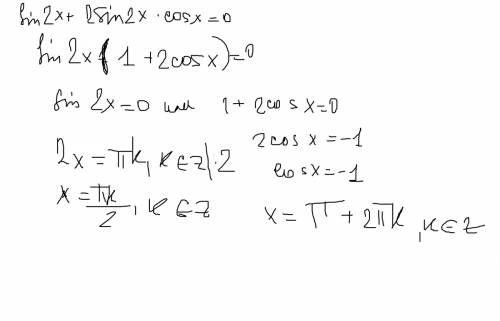 sin2x + 2sin2x · cosx = 0
sin 2x (1 + 2cosx) = 0
sin 2x = 0 или 1 + 2cosx = 0
2x = πk, k ∈ Z |·2 2cos x = -1
x = πk/2, k ∈ Z cosx = -1
x = π + 2πk, k ∈ Z